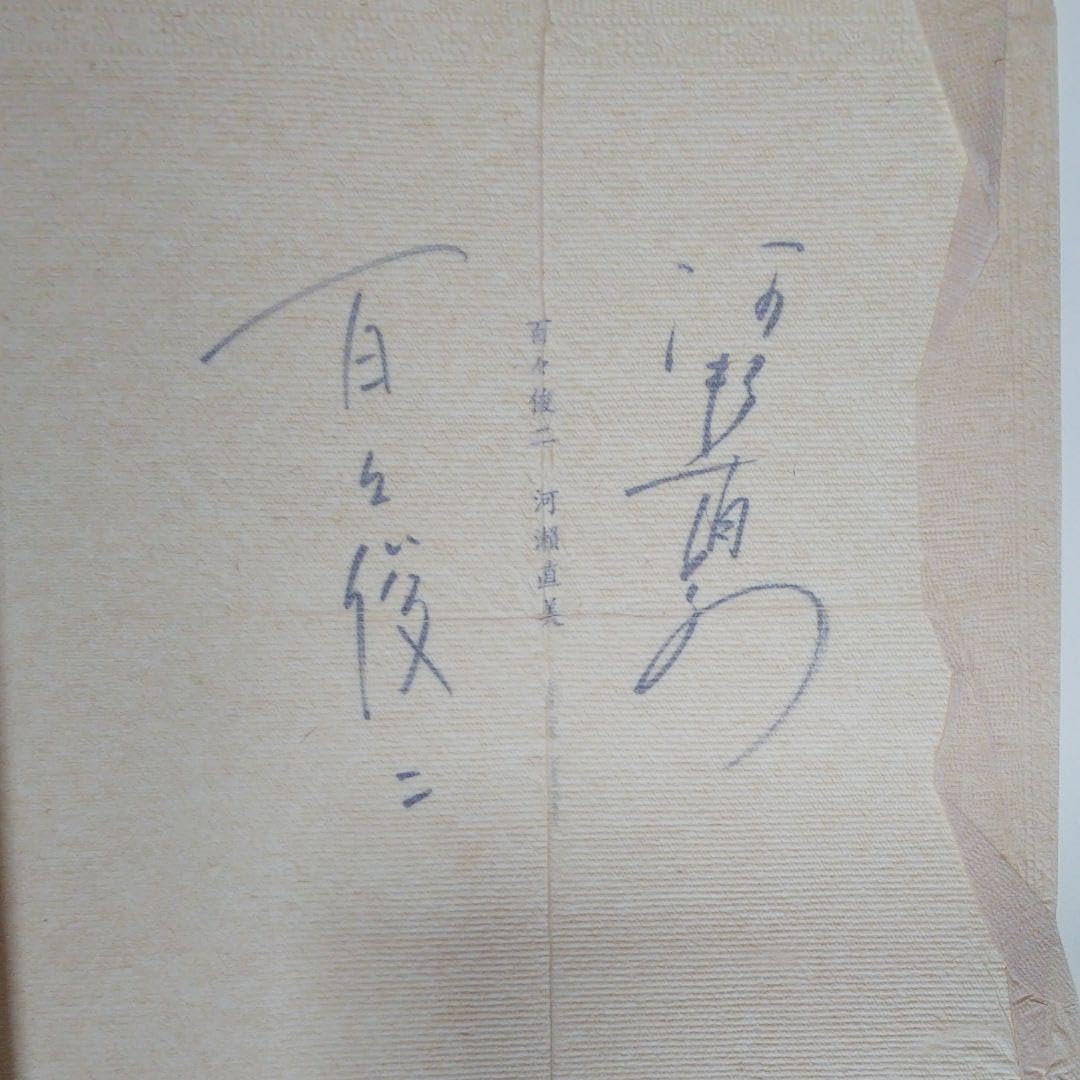 河瀬直美
百々俊二 河瀨直美
百々俊二